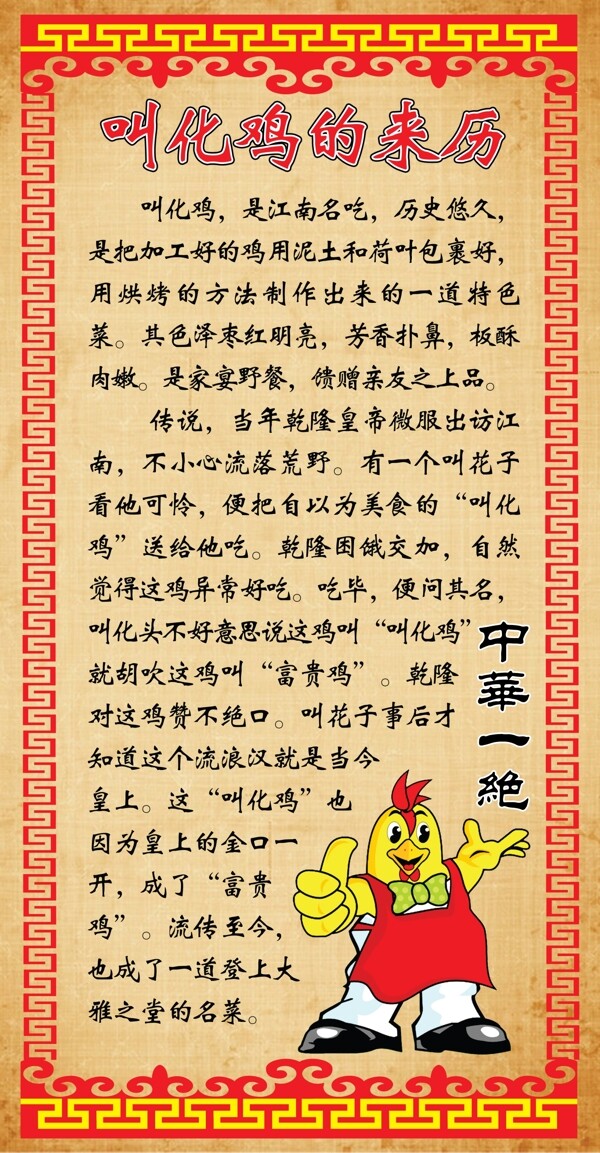 叫化鸡的来历
叫化鸡，是江南名吃，历史悠久，
是把加工好的鸡用泥土和荷叶包裹好，
用烘烤的方法制作出来的一道特色
菜。其色泽枣红明亮，芳香扑鼻，板酥
肉嫩。是家宴野餐，馈赠亲友之上品。
传说，当年乾隆皇帝微服出访江
南，不小心流落荒野。有一个叫花子
看他可怜，便把自以为美食的“叫化
鸡”送给他吃。乾隆困饿交加，自然
觉得这鸡异常好吃。吃毕，便问其名，
叫化头不好意思说这鸡叫“叫化鸡”
就胡吹这鸡叫“富贵鸡”。乾隆
对这鸡赞不绝口。叫花子事后才
知道这个流浪汉就是当今
皇上。这“叫化鸡”也
因为皇上的金口一
开，成了“富贵
鸡”。流传至今，
也成了一道登上大
雅之堂的名菜。
中華一絶